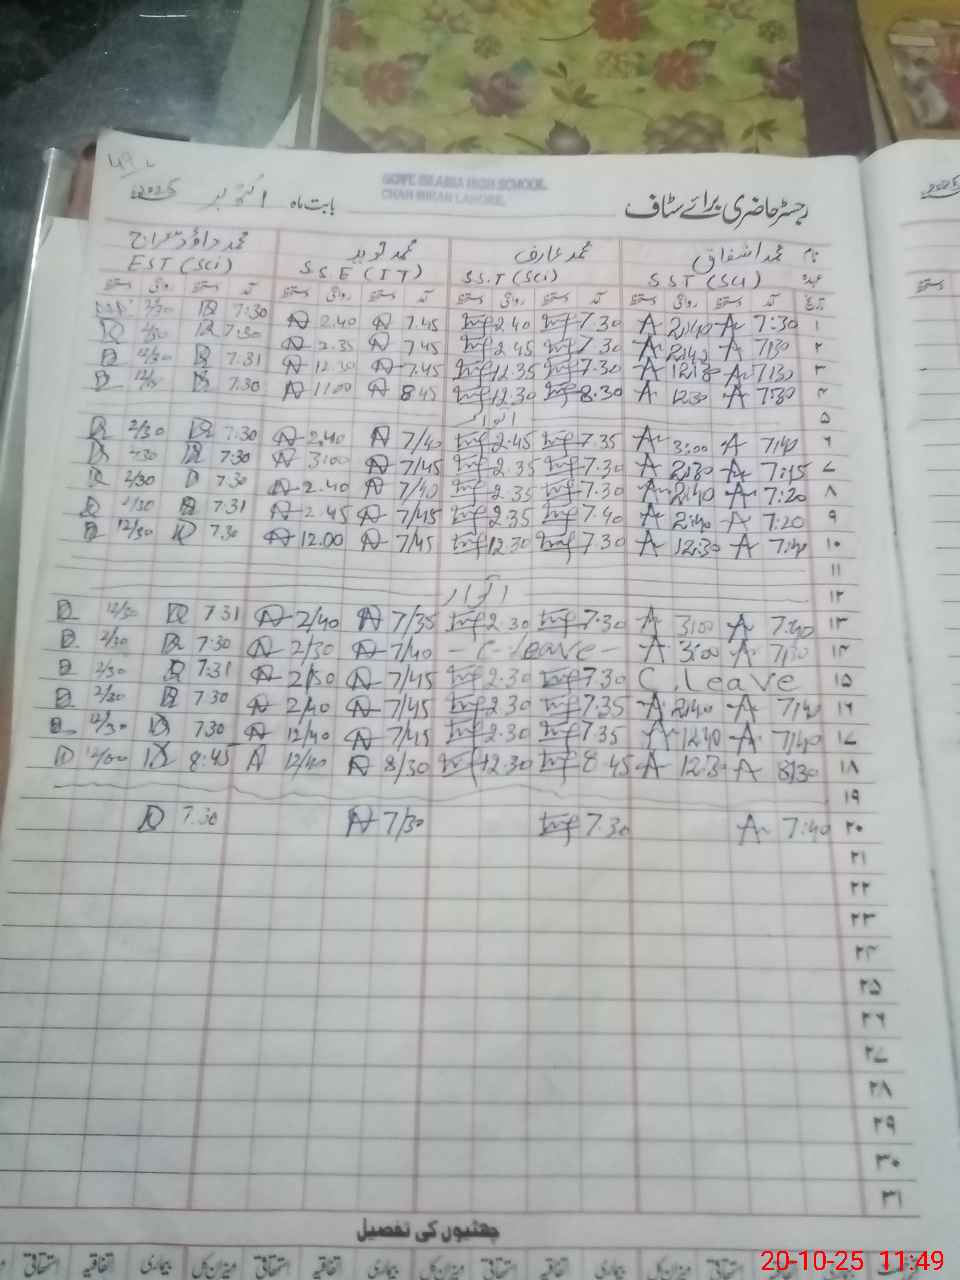 2025 اکتوبر بابت ماہ
GOVT. ISLAMIA HIGH SCHOOL
LAHORE.
رجسٹر حاضری برائے سٹاف
نام محمد اشفاق محمد عارف محمد نوید محمد داؤد معراج
عہدہ SST (Sci) SST (Sci) SSE (IT) EST (Sci)
تاریخ آمد دستخط روانگی دستخط آمد دستخط روانگی دستخط آمد دستخط روانگی دستخط آمد دستخط روانگی دستخط
۱ 7:30 2:40 7.30 2.40 7.45 2.40 7.30 2/30
۲ 7:30 2:40 7.30 2.45 7.45 2.35 7.30
۳ 7:30 7.30 12.35 7.45 12.30 7.31 12/30
۴ 7:30 12:30 8.30 12.30 8.45 11.00 7.30
۵ اتوار
۶ 7:40 3:00 7.35 2.45 7/40 2.40 7.30 2/30
۷ 7:15 2:30 7.30 2.35 7/45 3.00 7.30 2/30
۸ 7:20 2:40 7.30 2.35 7/40 2.40 7.30 2/30
۹ 7:20 2:40 7.40 2.35 7/45 2.45 7.31 2/30
۱۰ 7:40 12:30 7.30 12.30 7/45 12.00 7.30 12/30
۱۱
۱۲ اتوار
۱۳ 7:40 3:00 7.30 2.30 7/35 2/40 7.31 12/30
۱۴ 3:00 - C-leave - 7/40 2/30 7.30 2/30
۱۵ C.leave 7.30 2.30 7/45 2/50 7.31 2/30
۱۶ 7:40 2:40 7.35 2.30 7/45 2/40 7.30 2/30
۱۷ 7:40 12:40 7.35 2.30 7/45 12/40 7.30 12/30
۱۸ 8:30 12:30 8.45 12.30 8/30 12/40 8:45
۱۹
۲۰ 7:40 7.30 7/30 7.30
۲۱
۲۲
۲۳
۲۴
۲۵
۲۶
۲۷
۲۸
۲۹
۳۰
۳۱
چھٹیوں کی تفصیل
استحقاقی میزان کی بیماری اتفاقیہ استحقاقی میزان کی بیماری اتفاقیہ استحقاقی میزان کی بیماری اتفاقیہ استحقاقی
20-10-25 11:49